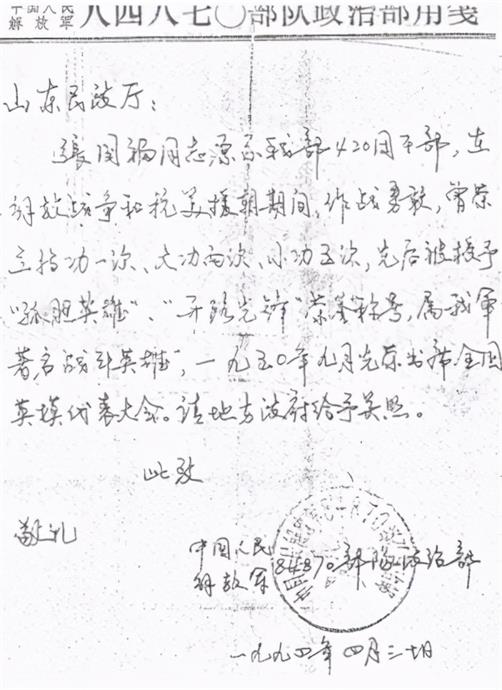 中国人民
解放军 八四八七〇部队政治部用笺
山东民政厅：
张国福同志源系我部420团干部，在
解放战争和抗美援朝期间，作战勇敢，曾荣
立特功一次、大功两次、小功五次，先后被授予
“孤胆英雄”、“开路先锋”荣誉称号，属我军
著名战斗英雄，一九五〇年九月光荣出席全国
英模代表大会。请地方政府给予关照。
此致
敬礼
中国人民
解放军 84870部队政治部
一九九四年四月三十日